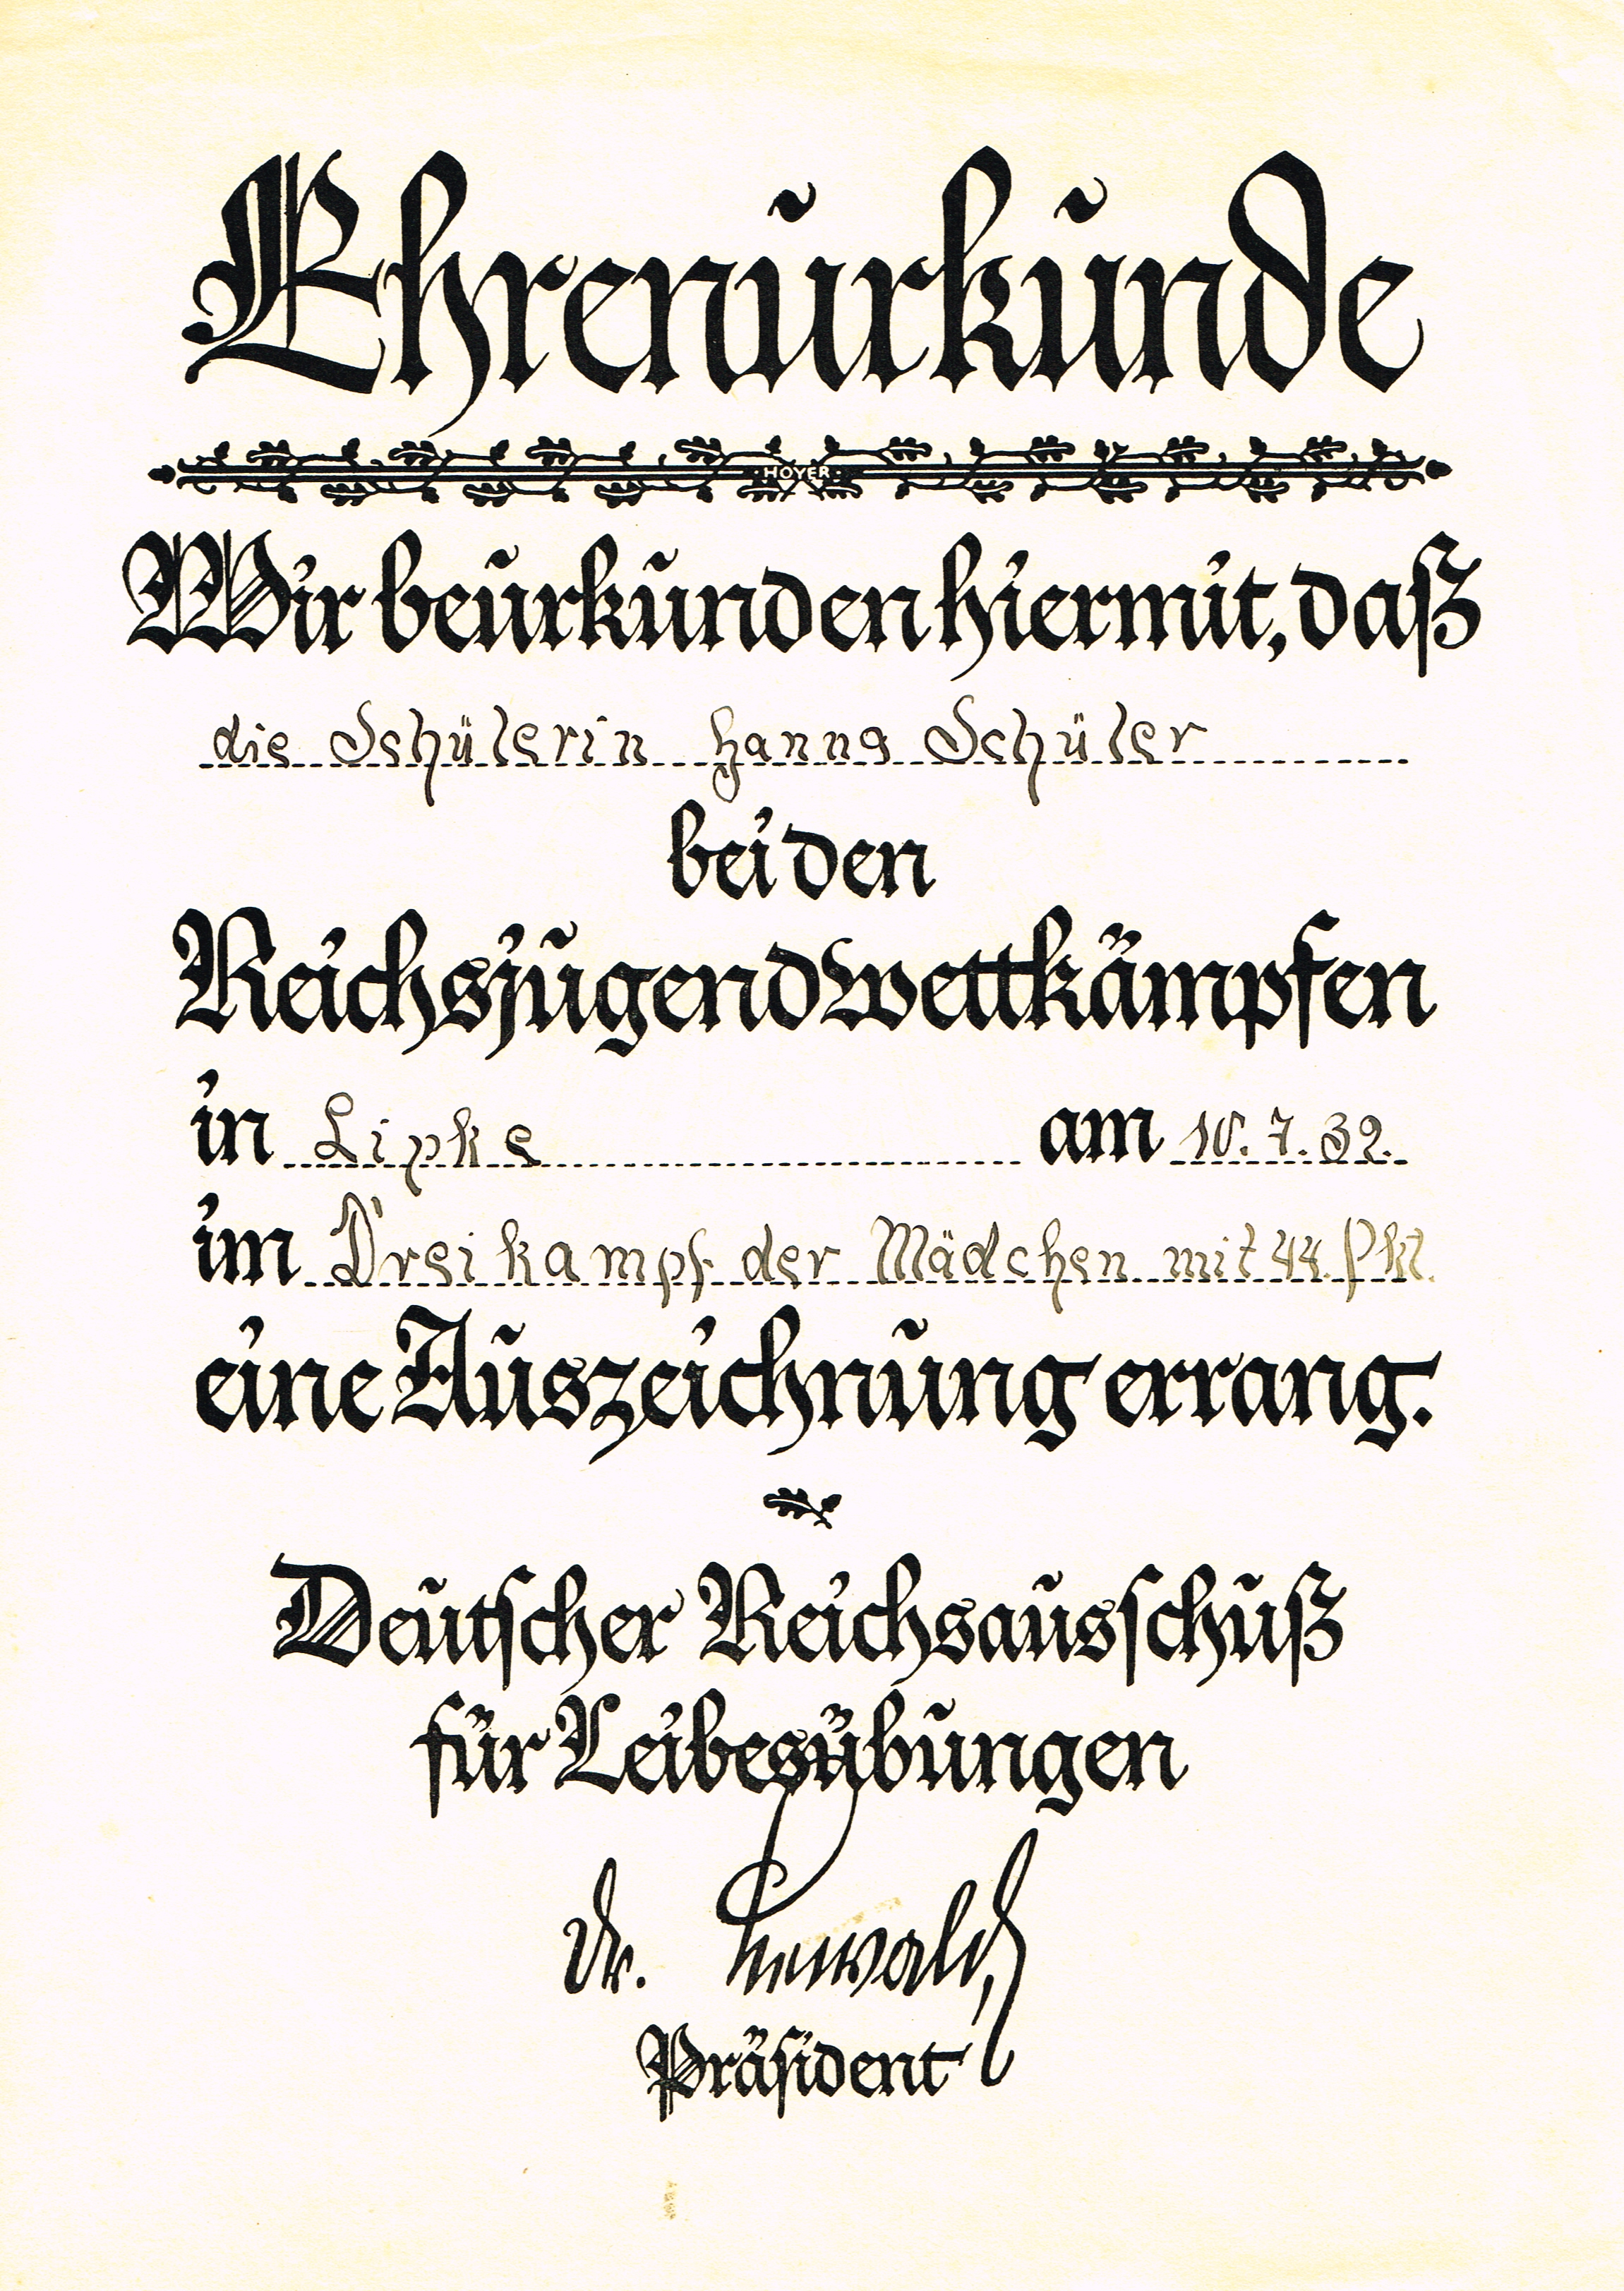 Ehrenurkunde
HOYER
Wir beurkunden hiermit, daß
die Schülerin Hanna Schüler
bei den
Reichsjugendwettkämpfen
in Lipke am 10. 7. 32.
im Dreikampf der Mädchen mit 44 Pkt.
eine Auszeichnung errang.
Deutscher Reichsausschuß
für Leibesübungen
Dr. Lewald
Präsident